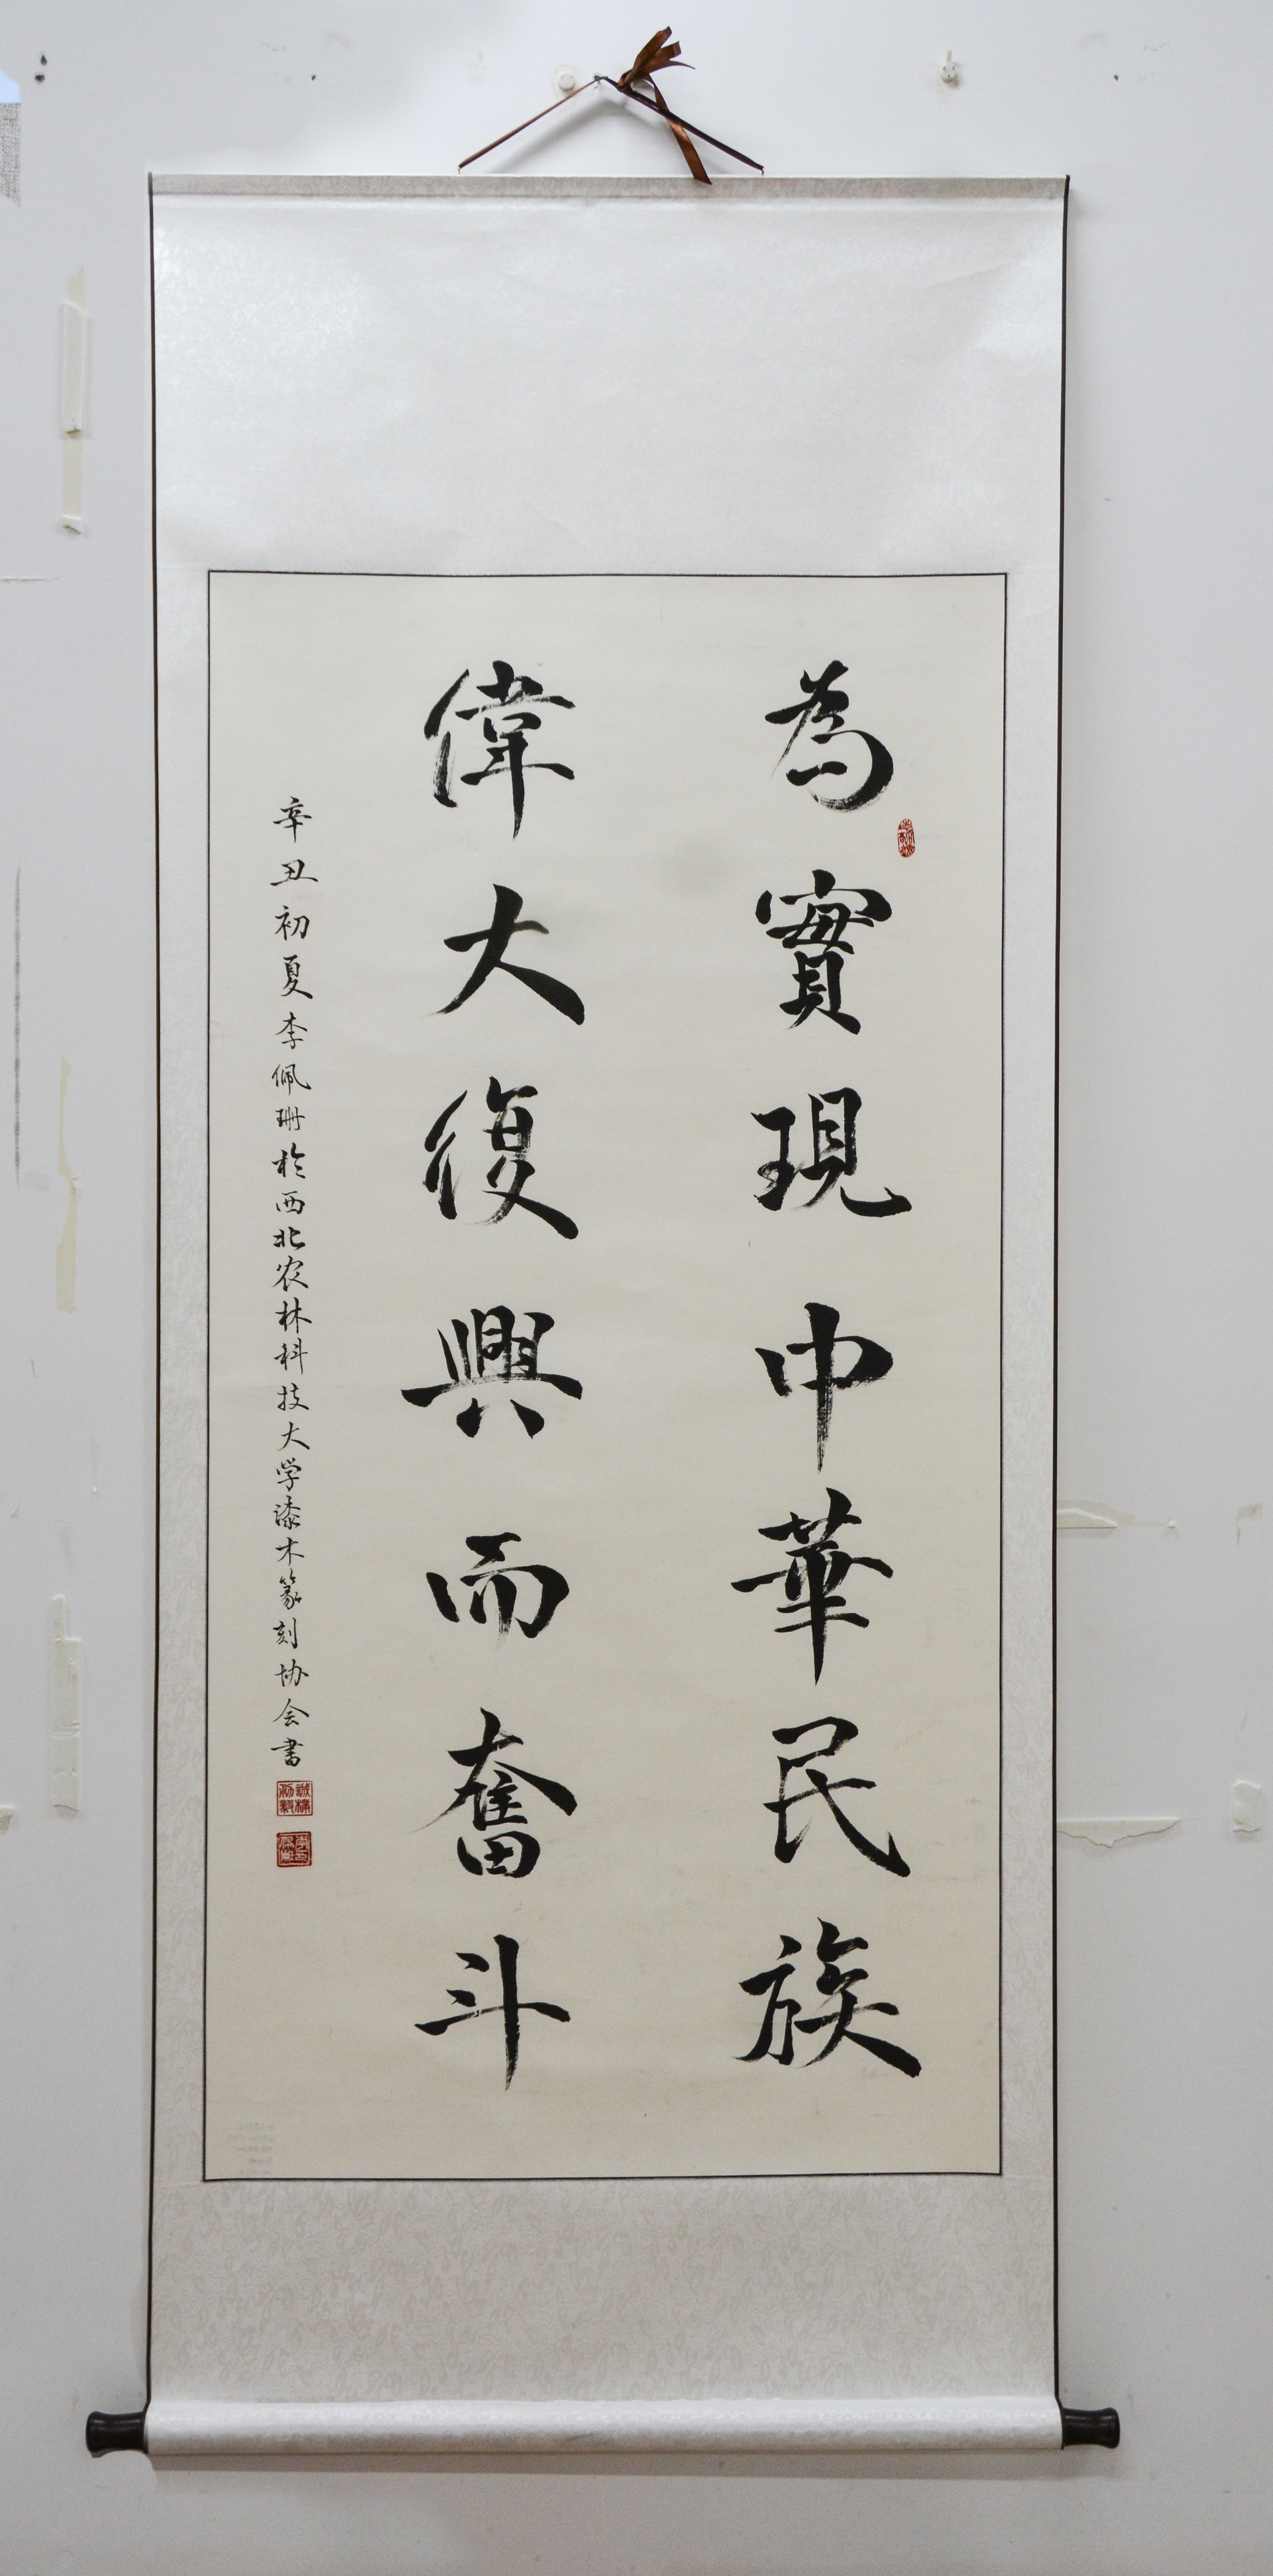 為實現中華民族
偉大復興而奮斗
辛丑初夏李佩珊於西北农林科技大学漆木篆刻协会書
誠樸勇毅